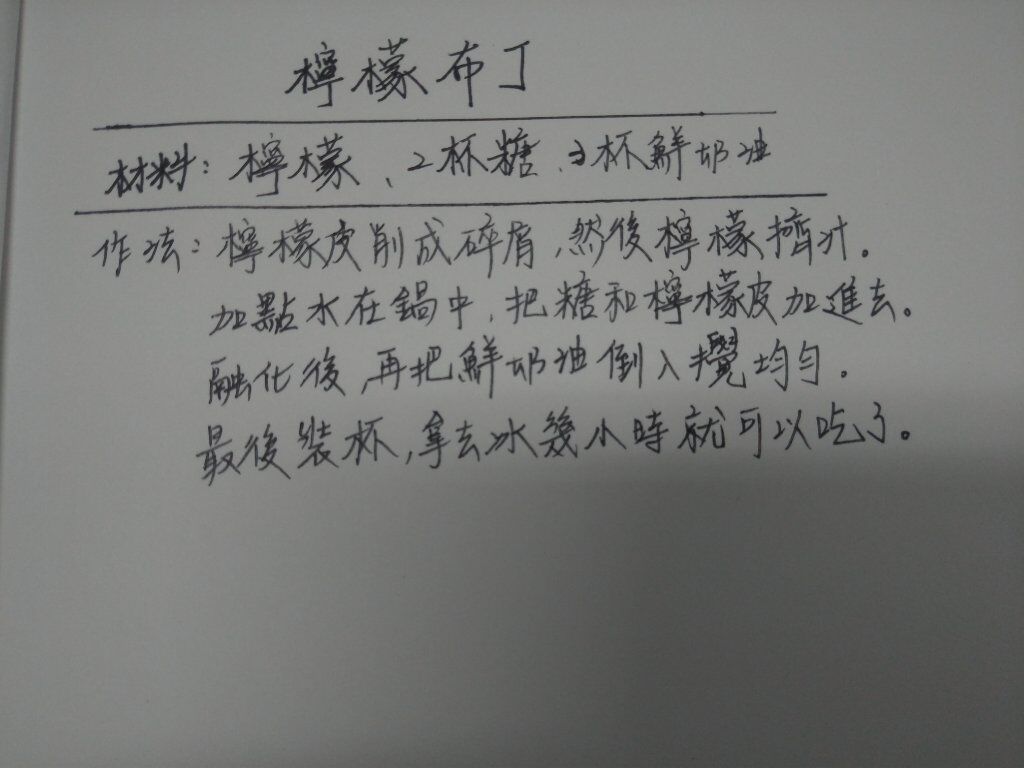 檸檬布丁
材料：檸檬、2杯糖、3杯鮮奶油
作法：檸檬皮削成碎屑，然後檸檬擠汁。
加點水在鍋中，把糖和檸檬皮加進去。
融化後，再把鮮奶油倒入攪均勻。
最後裝杯，拿去冰幾小時就可以吃了。